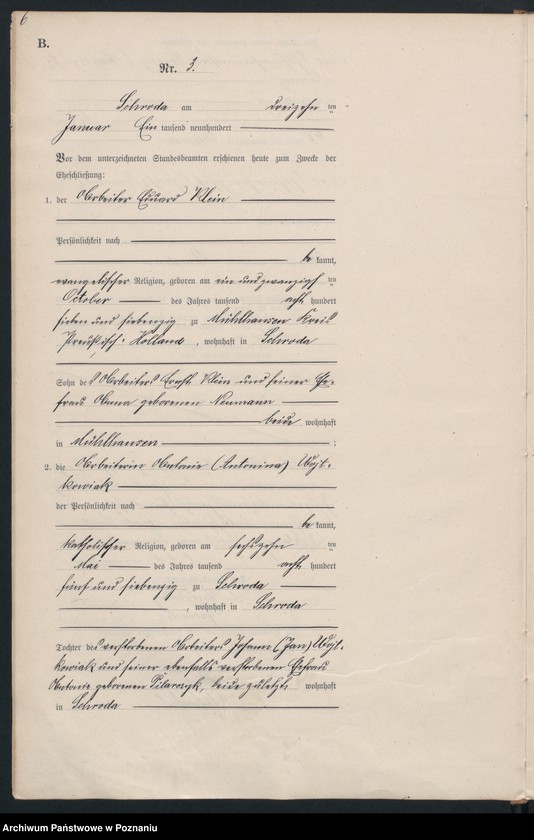 6
B.
Nr. 3.
Schroda am dreizehn ten
Januar Ein tausend neunhundert
Vor dem unterzeichneten Standesbeamten erschienen heute zum Zwecke der
Eheschließung:
1. der Arbeiter Eduard Klein
Persönlichkeit nach
be kannt,
evangelischer Religion, geboren am ein und zwanzigs ten
October des Jahres tausend acht hundert
sieben und siebenzig zu Mühlhausen Kreis
Preußisch-Holland, wohnhaft in Schroda
Sohn des Arbeiters Ernst Klein und seiner Ehe-
frau Anna geborenen Neumann
beide wohnhaft
in Mühlhausen ;
2. die Arbeiterin Antonie (Antonina) Wojt-
kowiak
der Persönlichkeit nach
be kannt,
katholischer Religion, geboren am sechszehn ten
Mai des Jahres tausend acht hundert
fünf und siebenzig zu Schroda
, wohnhaft in Schroda
Tochter des verstorbenen Arbeiters Johann (Jan) Wojt-
kowiak und seiner ebenfalls verstorbenen Ehefrau
Antonie geborenen Pilarczyk, beide zuletzt wohnhaft
in Schroda
Archiwum Państwowe w Poznaniu